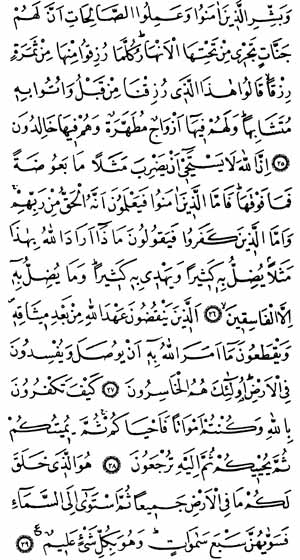 وَبَشِّرِ الَّذِينَ اٰمَنُوا وَعَمِلُوا الصَّالِحَاتِ اَنَّ لَهُمْ
جَنَّاتٍ تَجْرِى مِنْ تَحْتِهَا الْاَنْهَارُ كُلَّمَا رُزِقُوا مِنْهَا مِنْ ثَمَرَةٍ
رِزْقًا قَالُوا هٰذَا الَّذِى رُزِقْنَا مِنْ قَبْلُ وَاُتُوا بِهِ
مُتَشَابِهًا وَلَهُمْ فِيهَا اَزْوَاجٌ مُطَهَّرَةٌ وَهُمْ فِيهَا خَالِدُونَ
﴿٢٥﴾ اِنَّ اللهَ لَا يَسْتَحْيِى اَنْ يَضْرِبَ مَثَلًا مَا بَعُوضَةً
فَمَا فَوْقَهَا فَاَمَّا الَّذِينَ اٰمَنُوا فَيَعْلَمُونَ اَنَّهُ الْحَقُّ مِنْ رَبِّهِمْ
وَاَمَّا الَّذِينَ كَفَرُوا فَيَقُولُونَ مَاذَا اَرَادَ اللهُ بِهٰذَا
مَثَلًا يُضِلُّ بِهِ كَثِيرًا وَيَهْدِى بِهِ كَثِيرًا وَمَا يُضِلُّ بِهِ
اِلَّا الْفَاسِقِينَ ﴿٢٦﴾ اَلَّذِينَ يَنْقُضُونَ عَهْدَ اللهِ مِنْ بَعْدِ مِيثَاقِهِ
وَيَقْطَعُونَ مَا اَمَرَ اللهُ بِهِ اَنْ يُوصَلَ وَيُفْسِدُونَ
فِى الْاَرْضِ اُولٰئِكَ هُمُ الْخَاسِرُونَ ﴿٢٧﴾ كَيْفَ تَكْفُرُونَ
بِاللهِ وَكُنْتُمْ اَمْوَاتًا فَاَحْيَاكُمْ ثُمَّ يُمِيتُكُمْ
ثُمَّ يُحْيِيكُمْ ثُمَّ اِلَيْهِ تُرْجَعُونَ ﴿٢٨﴾ هُوَ الَّذِى خَلَقَ
لَكُمْ مَا فِى الْاَرْضِ جَمِيعًا ثُمَّ اسْتَوٰى اِلَى السَّمَاءِ
فَسَوّٰيهُنَّ سَبْعَ سَمٰوَاتٍ وَهُوَ بِكُلِّ شَىْءٍ عَلِيمٌ ﴿٢٩﴾